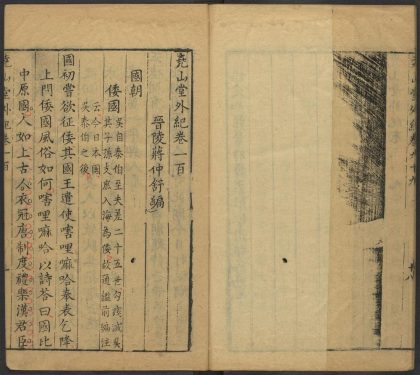 堯山堂外紀卷一百
晉陵蔣仲舒編
國朝
倭國
吳自泰伯至夫差二十五世勾踐滅吳
其子孫支庶入海為倭故通鑑前編註
云今日本國
吳泰伯之後
國初嘗欲征倭其國王遣使嗐哩嘛哈奉表乞降
上問倭國風俗如何嗐哩嘛哈以詩荅曰國比
中原國人如上古人衣冠唐制度禮樂漢君臣
堯山堂外紀 卷一百